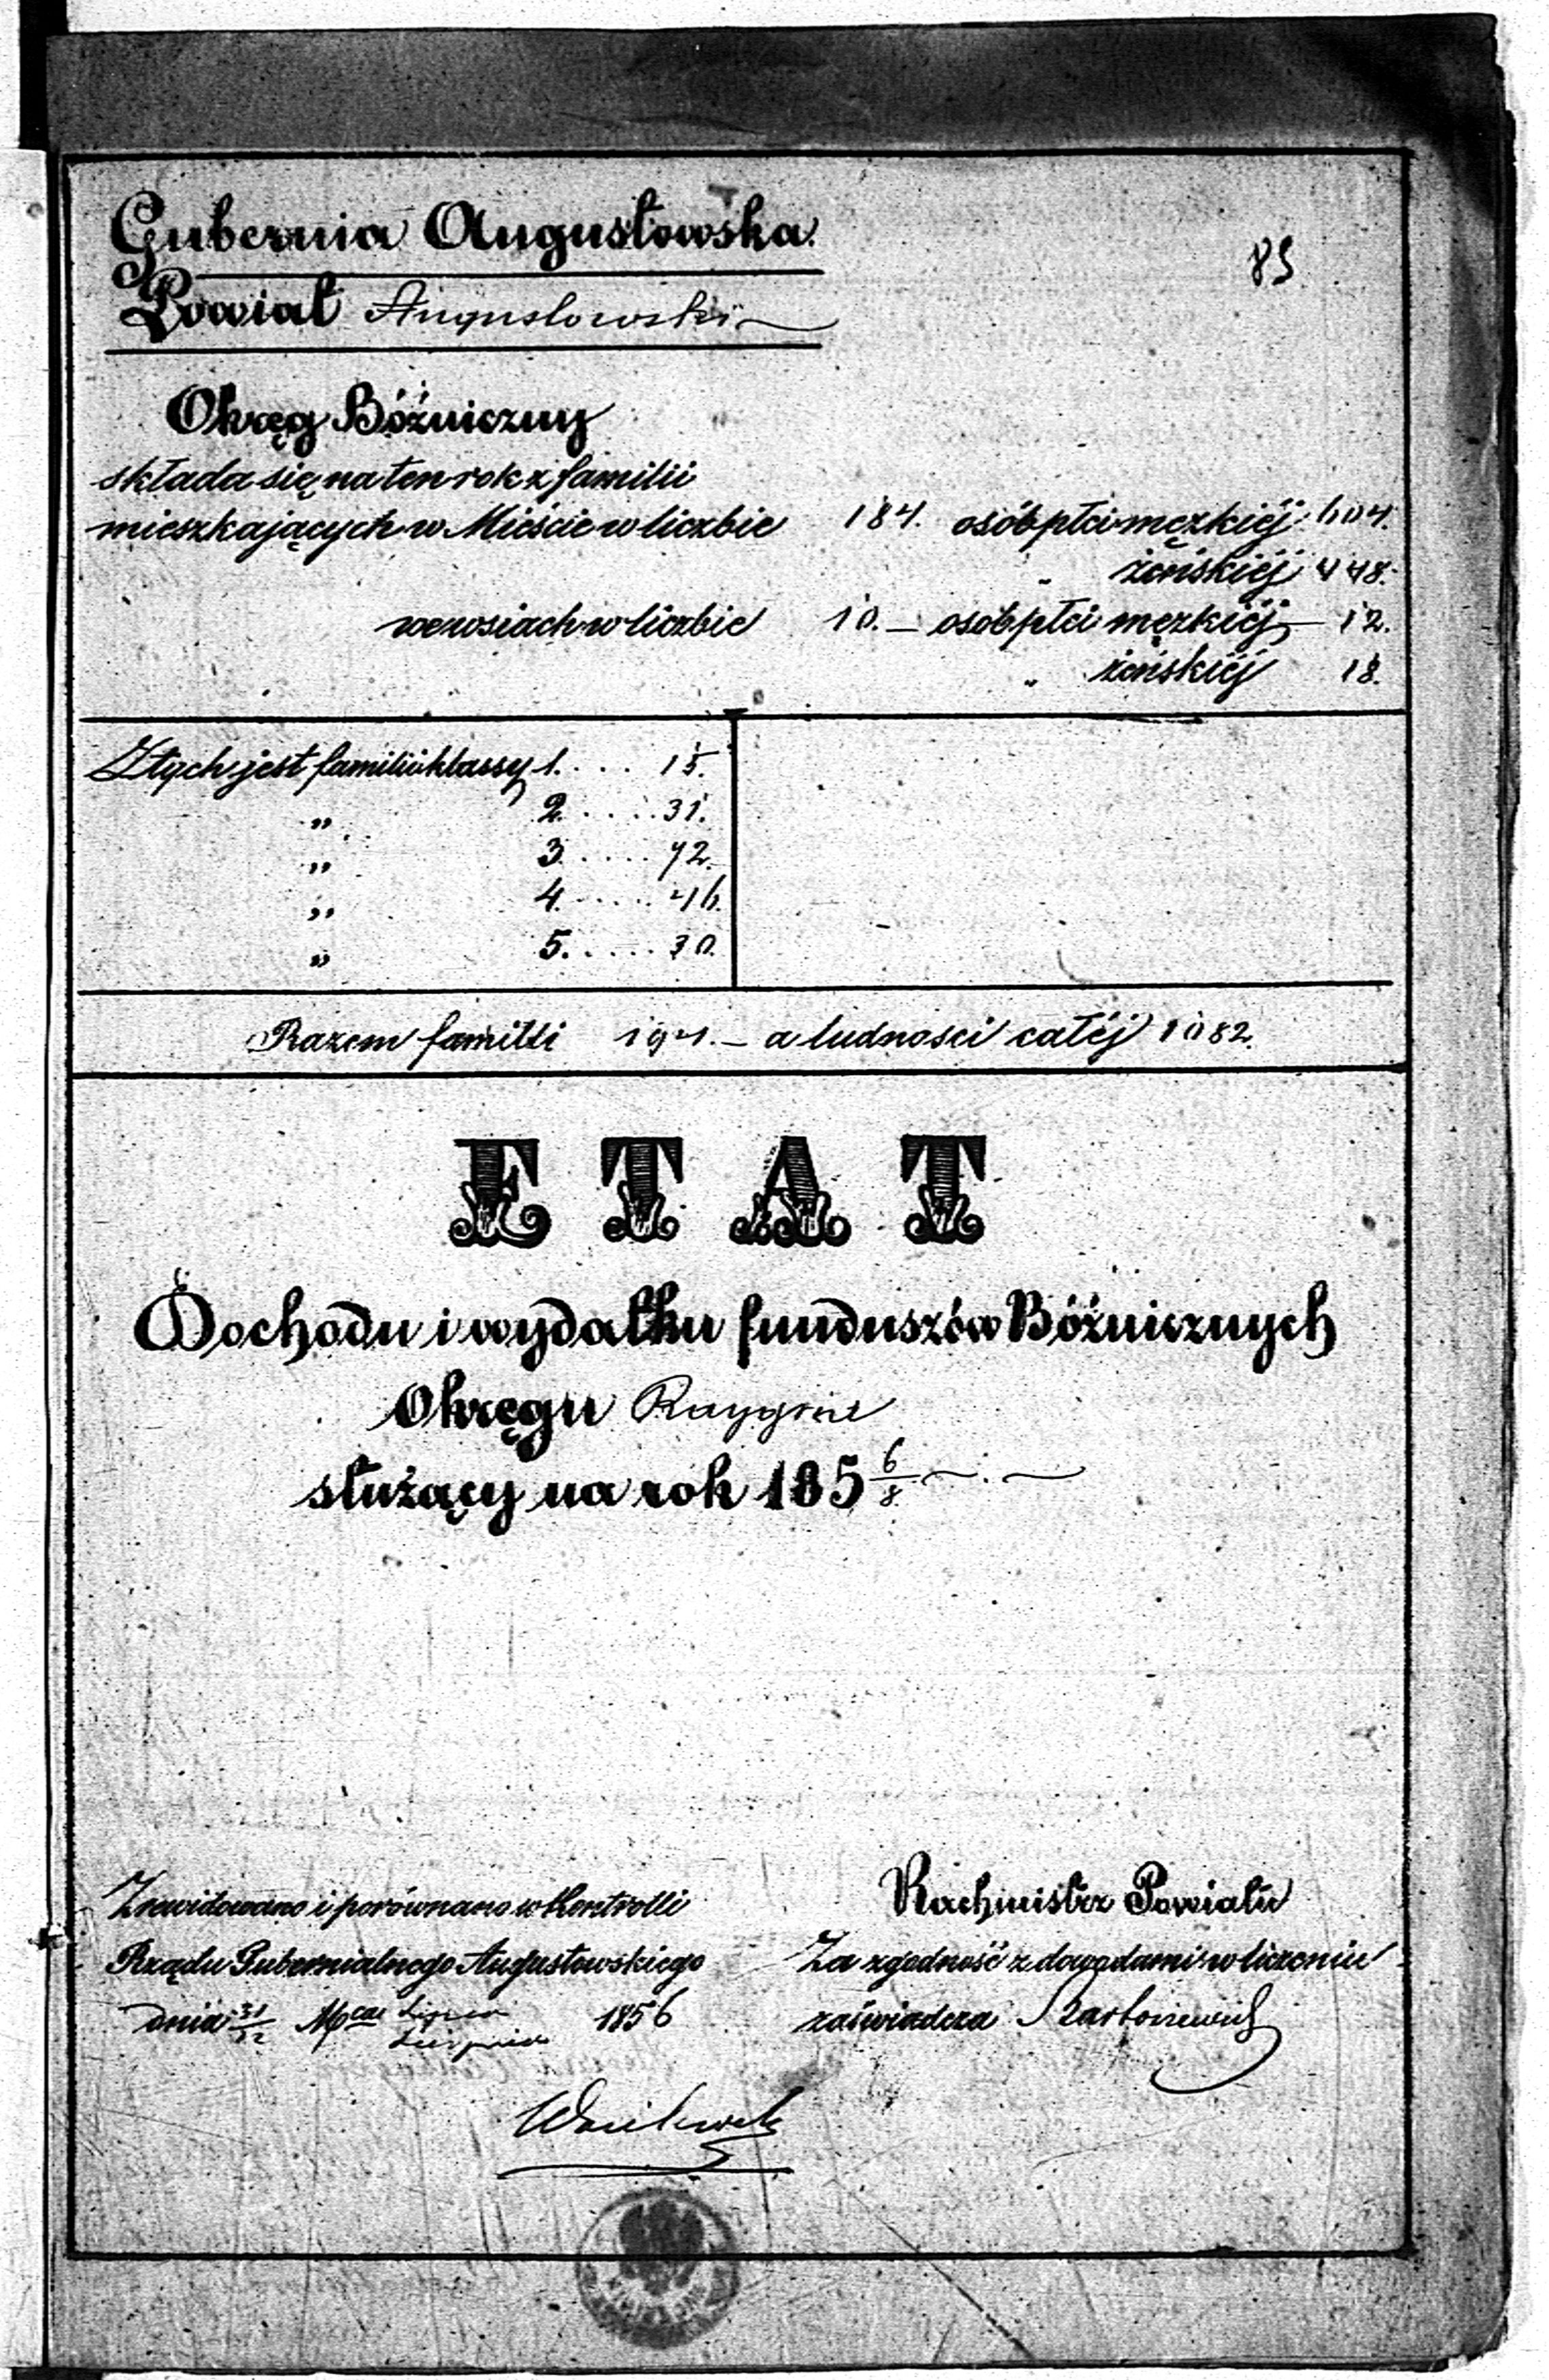 Gubernia Augustowska.
Powiat Augustowski
Okręg Bóźniczny
składa się na ten rok z familii
mieszkających w Mieście w liczbie 184. osób płci męzkiéj 604.
" żeńskiéj 448.
we wsiach w liczbie 10. — osób płci męzkiéj — 12.
" żeńskiéj 18.
Z tych jest familii klassy 1. .... 15.
" 2. .... 31.
" 3. .... 72.
" 4. .... 46.
" 5. .... 30.
Razem familii 194. — a ludności całéj 1082.
ETAT
Dochodu i wydatku funduszów Bóźnicznych
Okręgu Raygrod
służący na rok 185 6/8.
Zrewidowano i porównano w Kontrolli
Rządu Gubernialnego Augustowskiego
dnia 31/12 Mca Lipca/Sierpnia 1856
Rachmistrz Powiatu
Za zgodność z dowodami w liczeniu
zaświadcza Bartoszewicz